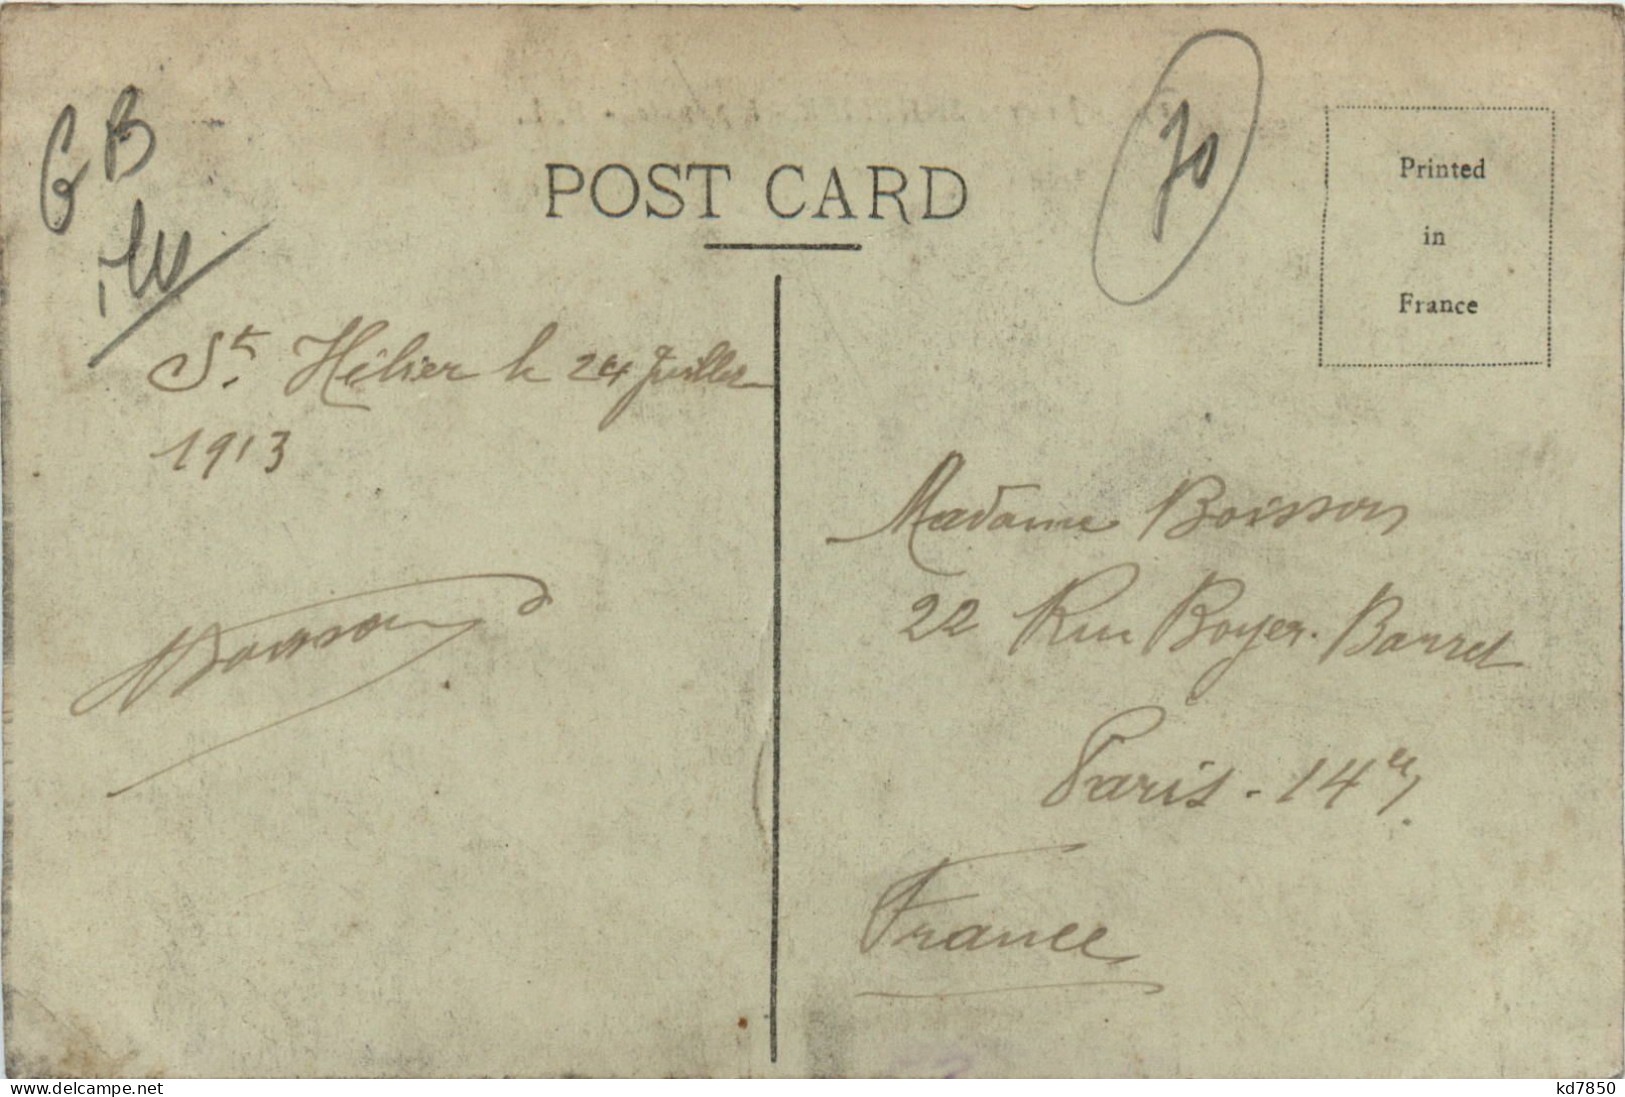 G B
70
POST CARD
Printed
in
France
St. Hélier le 24 Juillet
1913
Boisson
Madame Boisson
22 Rue Boyer-Barret
Paris - 14e
France
www.delcampe.net
kd7850